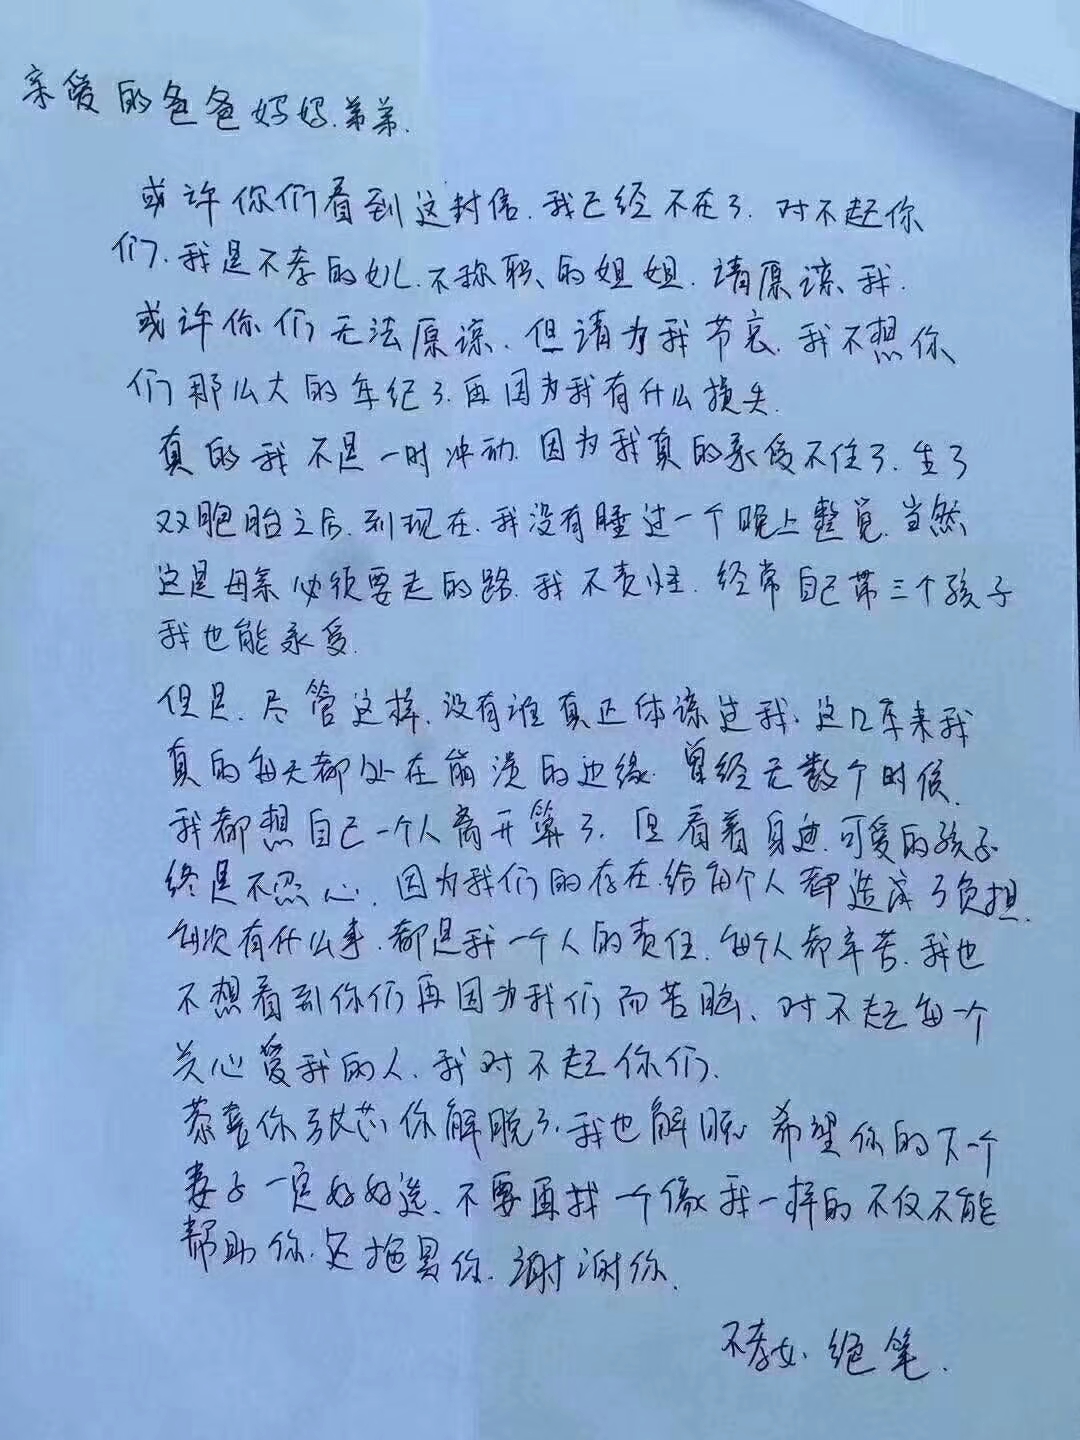 亲爱的爸爸妈妈.弟弟.
或许你们看到这封信.我已经不在了.对不起你
们.我是不孝的女儿.不称职的姐姐.请原谅我.
或许你们无法原谅.但请为我节哀.我不想你
们那么大的年纪了.再因为我有什么损失.
真的我不是一时冲动.因为我真的承受不住了.生了
双胞胎之后.到现在.我没有睡过一个晚上整觉.当然
这是母亲必须要走的路.我不责怪.经常自己带三个孩子
我也能承受.
但是.尽管这样.没有谁真正体谅过我.这几年来我
真的每天都处在崩溃的边缘.曾经无数个时候.
我都想自己一个人离开算了.但看着身边可爱的孩子
终是不忍心.因为我们的存在.给每个人都造成了负担.
每次有什么事.都是我一个人的责任.每个人都辛苦.我也
不想看到你们再因为我们而苦恼、对不起每一个
关心爱我的人.我对不起你们.
恭喜你 你解脱了.我也解脱 希望你的下一个
妻子一定好好选.不要再找一个像我一样的不仅不能
帮助你.还拖累你.谢谢你.
不孝女.绝笔.